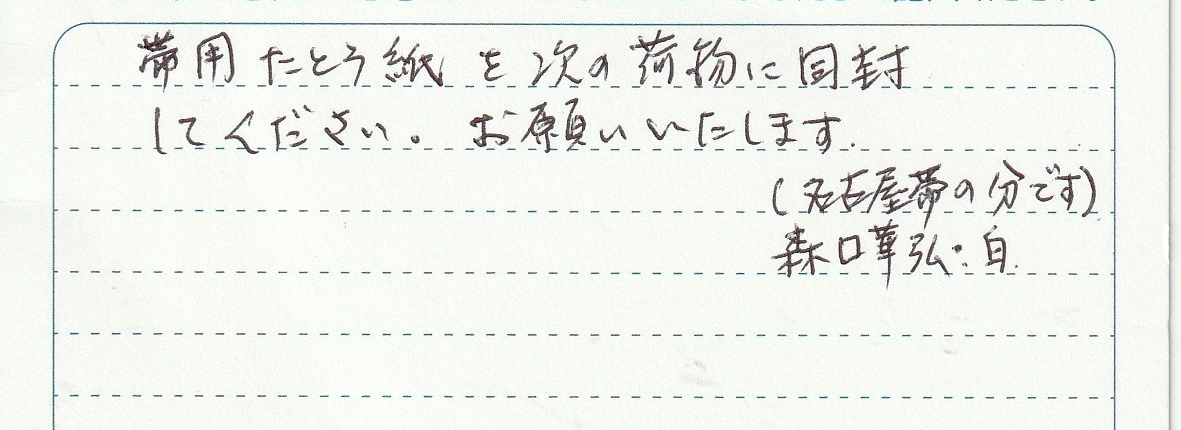 帯用たとう紙を次の荷物に同封
してください。お願いいたします.
(名古屋帯の分です)
森口華弘:白